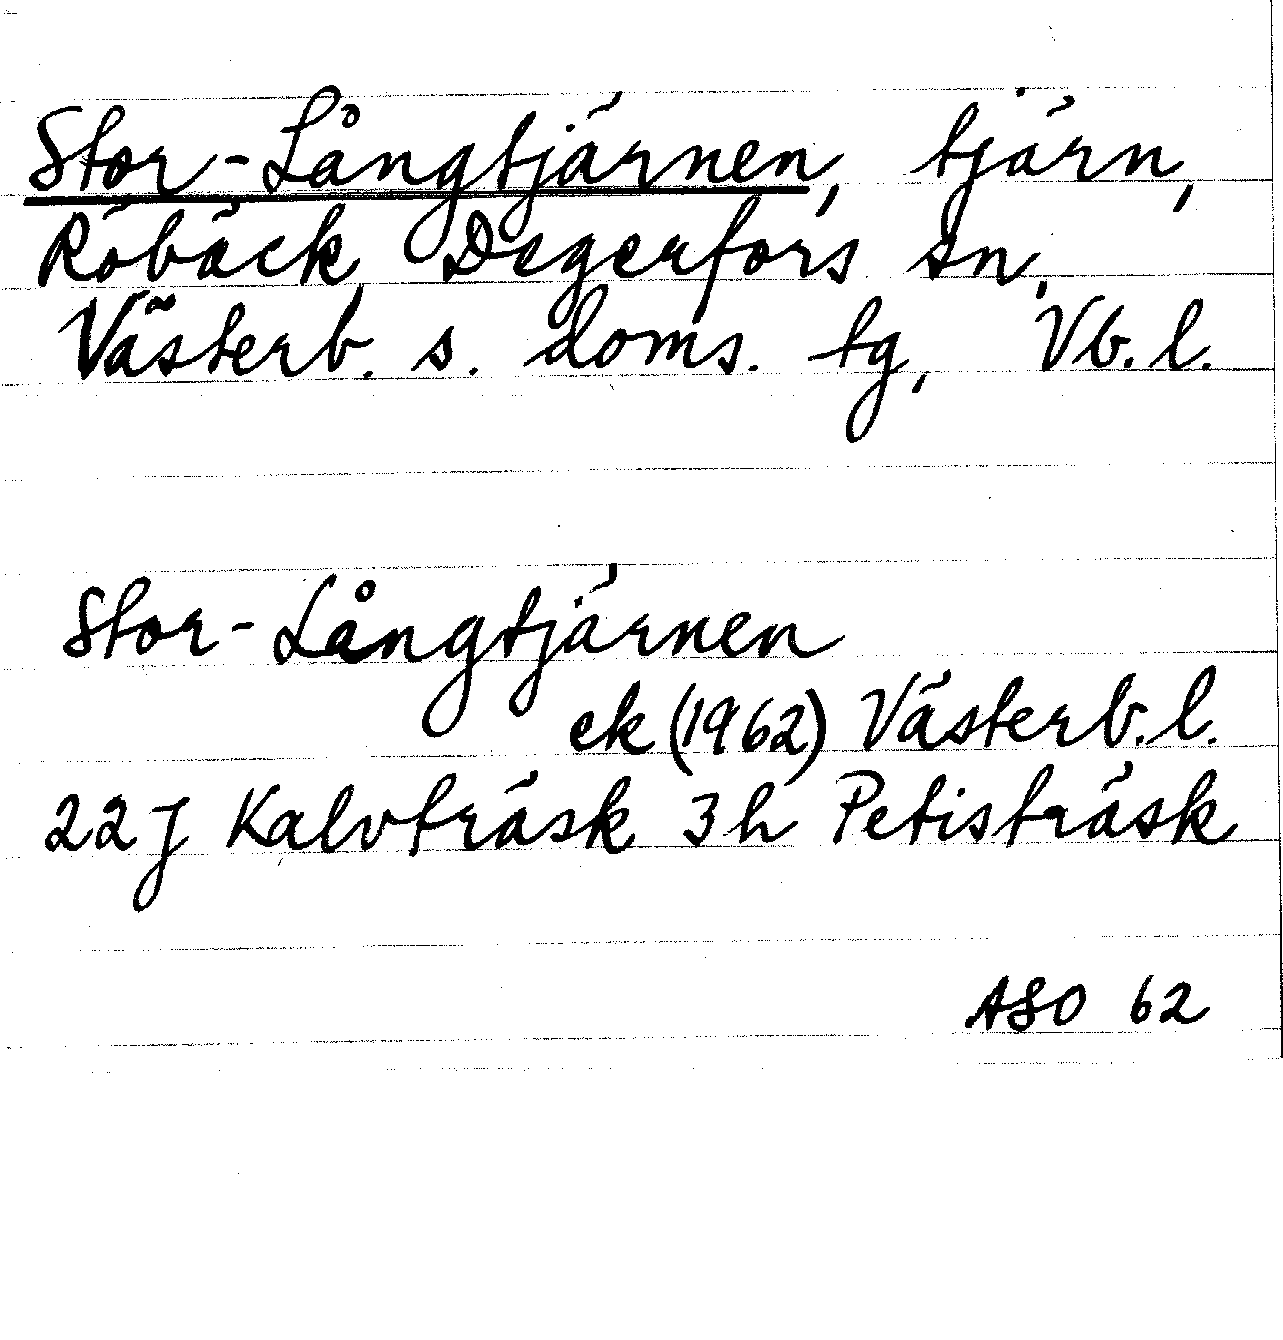 Stor-Långtjärnen, tjärn,
Röbäck, Degerfors sn,
Västerb. s. doms. tg, Vb. l.
Stor-Långtjärnen
ek (1962) Västerb. l.
22 J Kalvträsk 3 h Petisträsk
ASO 62